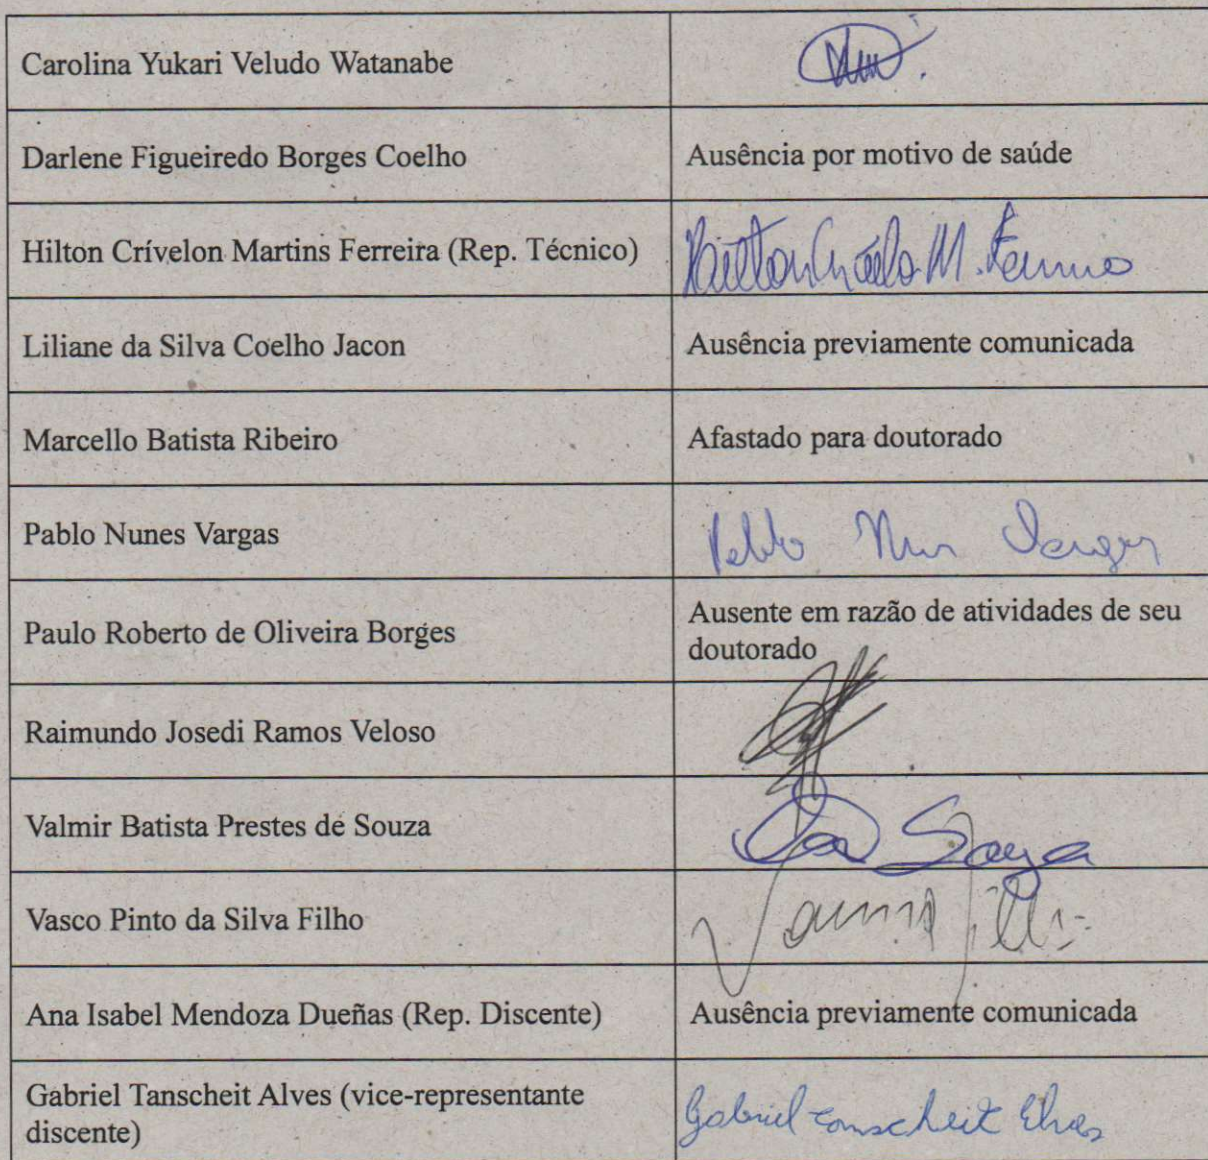 Carolina Yukari Veludo Watanabe
Darlene Figueiredo Borges Coelho
Ausência por motivo de saúde
Hilton Crívelon Martins Ferreira (Rep. Técnico)
Liliane da Silva Coelho Jacon
Ausência previamente comunicada
Marcello Batista Ribeiro
Afastado para doutorado
Pablo Nunes Vargas
Paulo Roberto de Oliveira Borges
Ausente em razão de atividades de seu
doutorado
Raimundo Josedi Ramos Veloso
Valmir Batista Prestes de Souza
Souza
Vasco Pinto da Silva Filho
Ana Isabel Mendoza Dueñas (Rep. Discente)
Ausência previamente comunicada
Gabriel Tanscheit Alves (vice-representante
discente)
Gabriel Tanscheit Alves